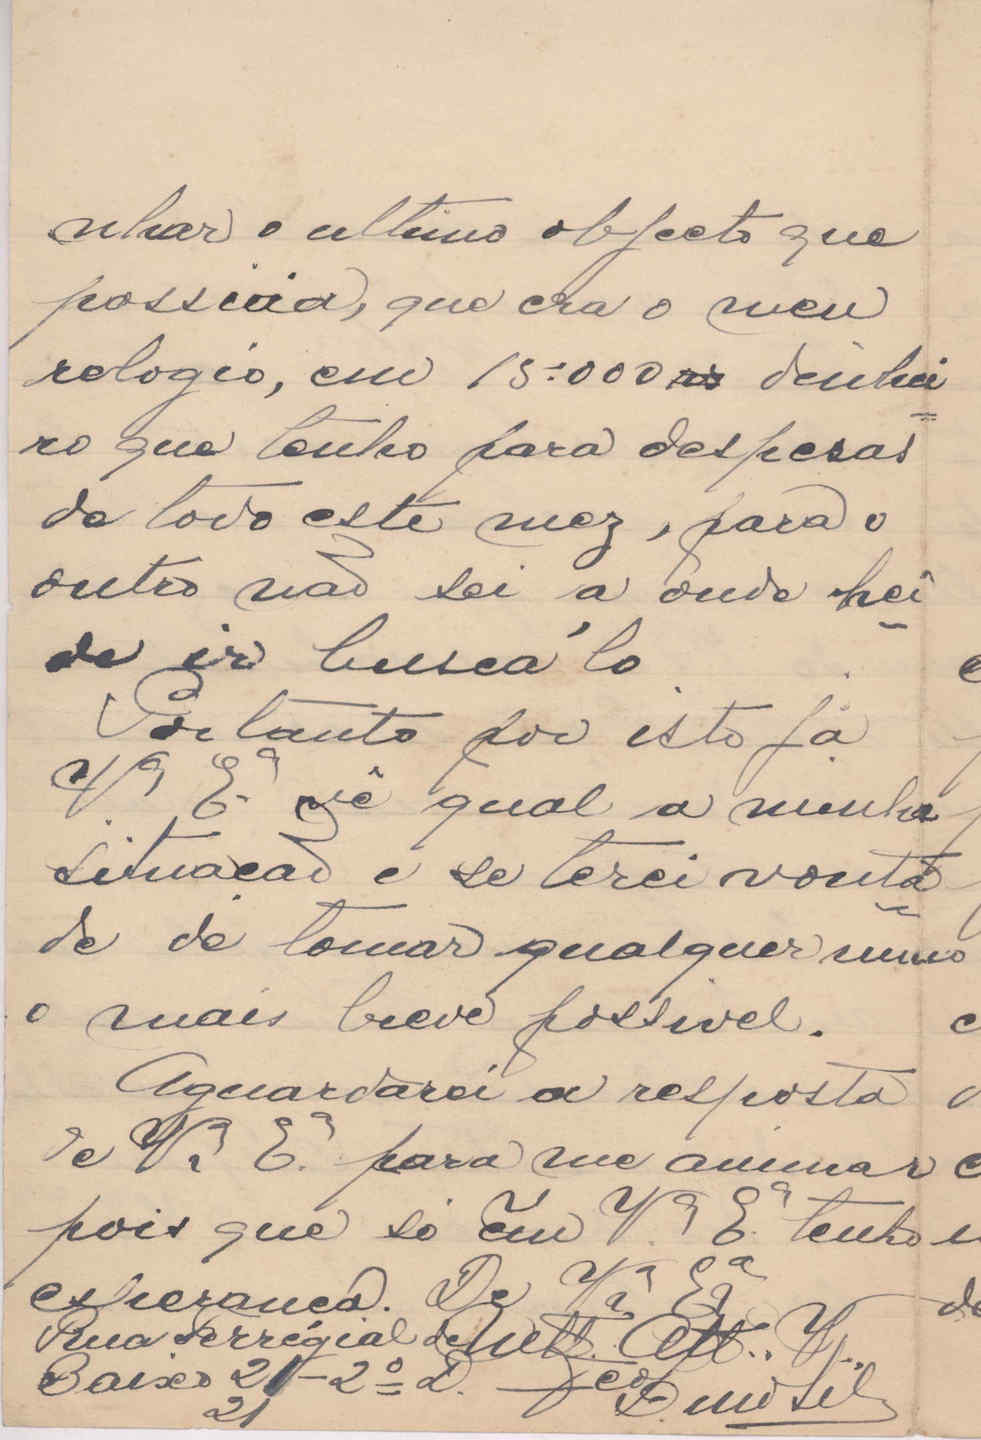 nhar o ultimo objecto que
possuia, que era o meu
relogio, em 15:000 rs dinhei
ro que tenho para despesas
de todo este mez, para o
outro não sei a onde hei
de ir buscá lo
Portanto por isto já
Vª Eª vê qual a minha
situação e se terei vonta
de de tomar qualquer rumo
o mais breve possivel.
Aguardarei a resposta
de Vª Eª para me animar
pois que só em Vª Eª tenho
esperança. De Vª Eª
Rua Ferregial de Mtº Attº. V.
Baixo 21-2º D.
21